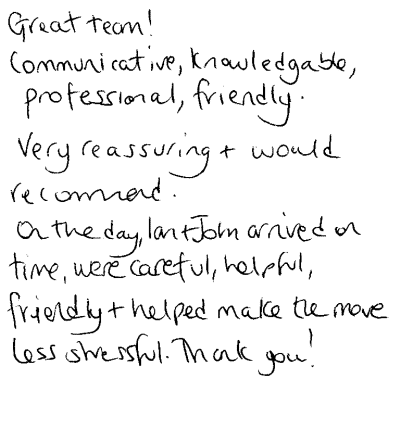 Great team!
Communicative, knowledgable,
professional, friendly.
Very reassuring + would
recommend.
On the day, Ian + John arrived on
time, were careful, helpful,
friendly + helped make the move
less stressful. Thank you!